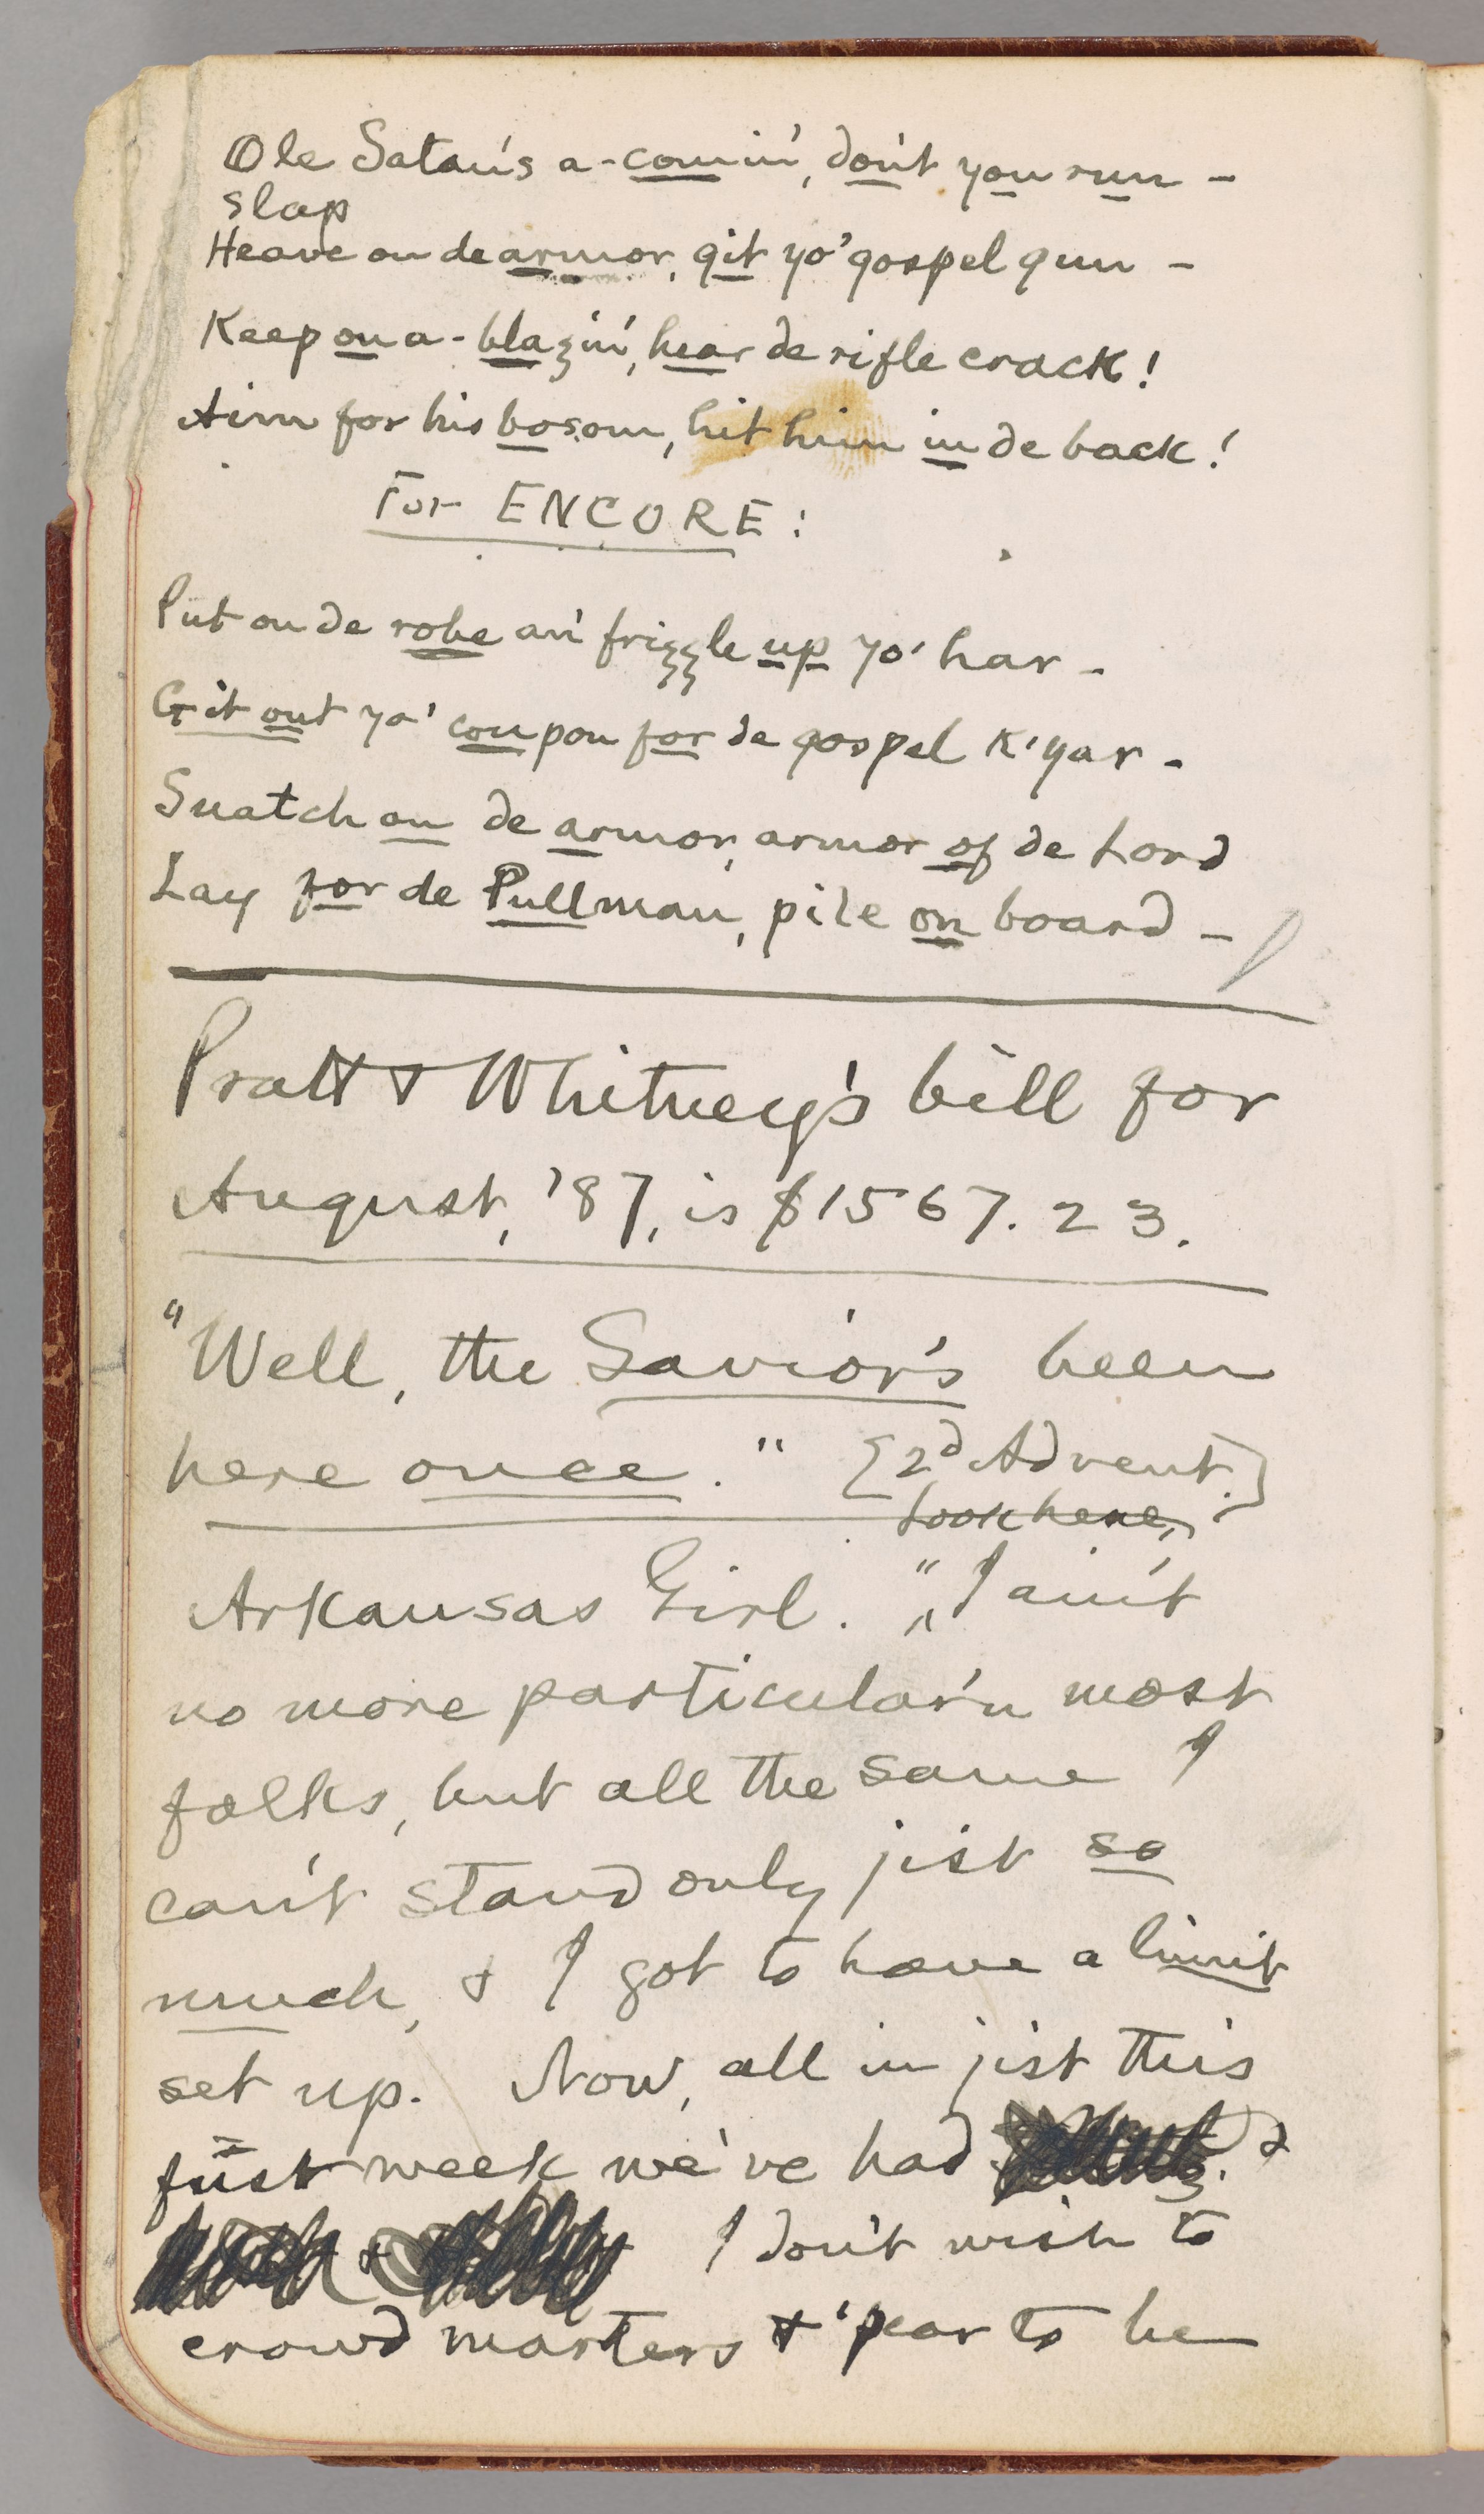 Ole Satan's a-comin', don't you run –
slap
Heave on de armor, git yo' gospel gun –
Keep on a-blazin', hear de rifle crack!
Aim for his bosom, hit him in de back!
For ENCORE:
Put on de robe an' frizzle up yo' har –
Git out yo' coupon for de gospel k'yar –
Snatch on de armor, armor of de Lord
Lay for de Pullman, pile on board –
Pratt & Whitney's bill for
August, '87, is $1567.23.
"Well, the Savior's been
here once." [2d Advent.]
Look here,
Arkansas Girl. "I ain't
no more particular'n most
folks, but all the same I
can't stand only jist so
much, & I got to have a limit
set up. Now, all in jist this
fust week we've had &
& I don't wish to
crowd marters & 'pear to be